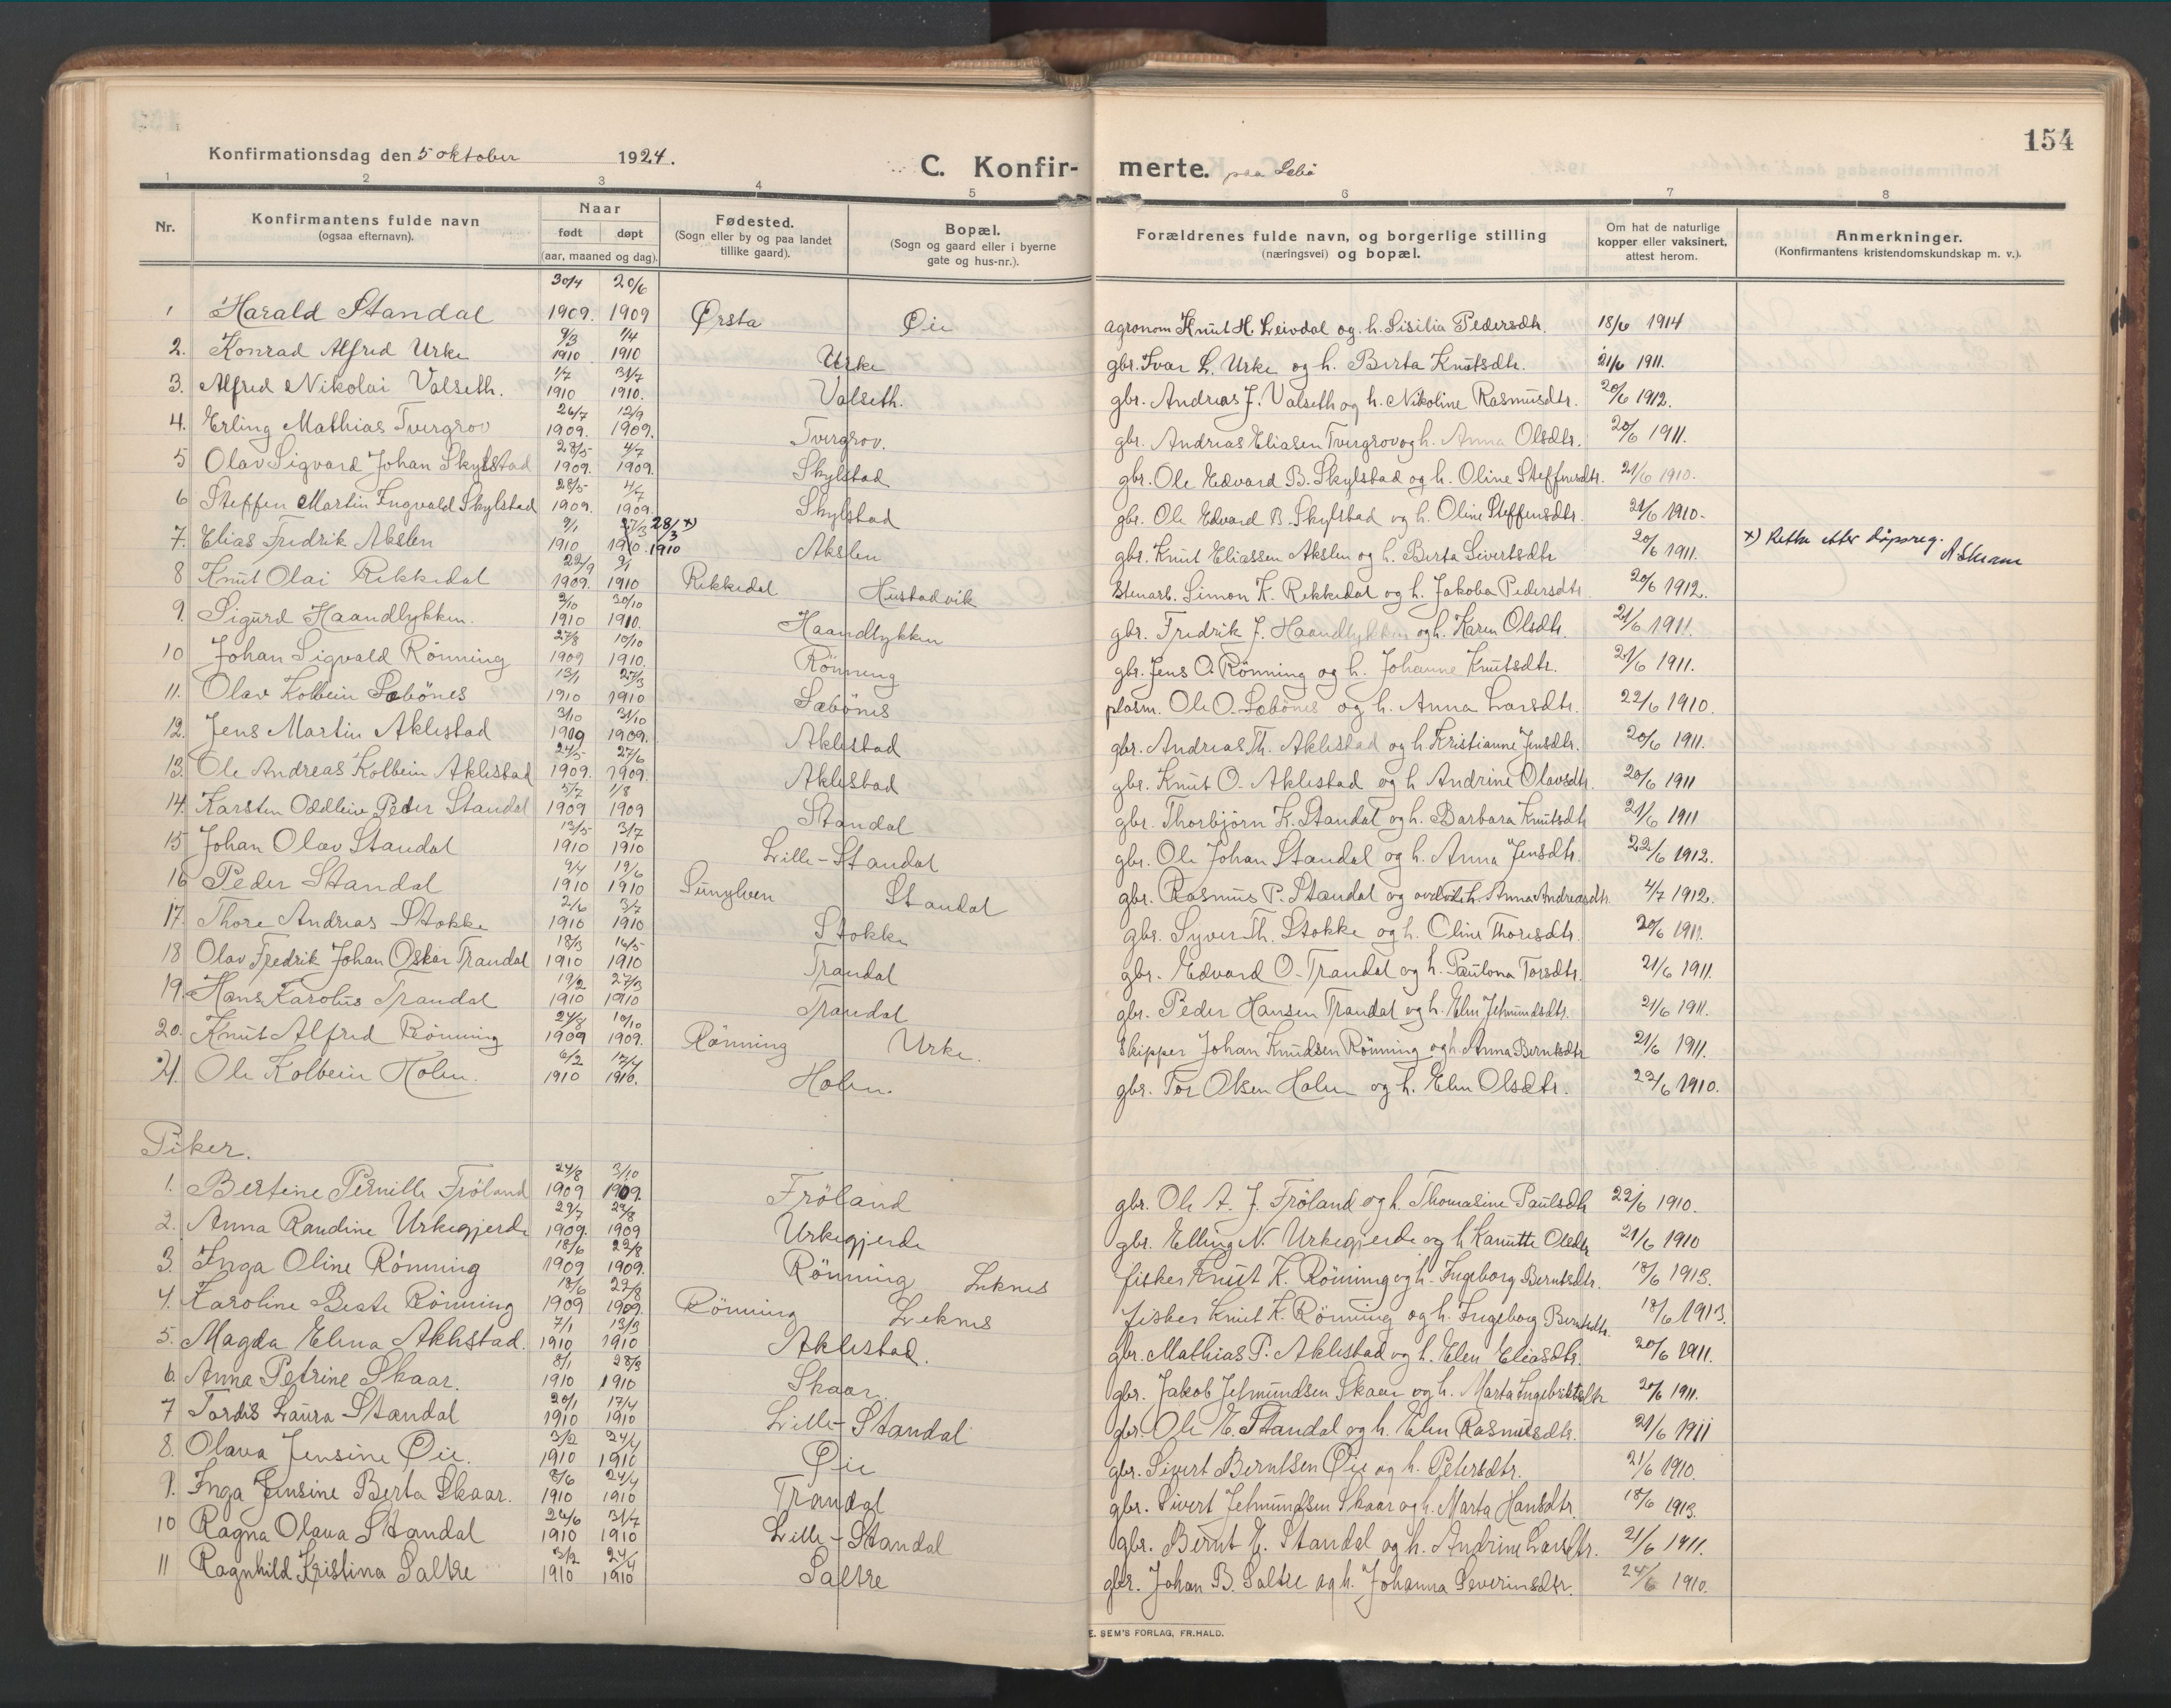 154
Konfirmationsdag den 5 oktober 1924.
C. Konfir- merte. paa Sæbö
1 2 3 4 5 6 7 8
Nr. Konfirmantens fulde navn (ogsaa efternavn). Naar født døpt (aar, maaned og dag). Fødested. (Sogn eller by og paa landet tillike gaard). Bopæl. (Sogn og gaard eller i byerne gate og hus-nr.). Forældrenes fulde navn, og borgerlige stilling (næringsvei) og bopæl. Om hat de naturlige kopper eller vaksinert, attest herom. Anmerkninger. (Konfirmantens kristendomskundskap m. v.).
1 Harald Standal 30/4 1909. 20/6 1909 Ørsta Øie agronom Knut H. Leivdal og h. Sisilia Pedersdtr. 18/6 1914
2. Konrad Alfred Urke 9/3 1910 1/4 1910 Urke gbr. Ivar L. Urke og h. Berta Knutsdtr. 21/6 1911.
3. Alfred Nikolai Valseth. 1/7 1910 31/7 1910. Valseth. gbr. Andreas J. Valseth og h. Nikoline Rasmusdtr. 20/6 1912.
4. Erling Mathias Tvergrov 26/7 1909. 12/9 1909. Tvergrov. gbr. Andreas Eliasen Tvergrov og h. Anna Olsdtr. 20/6 1911.
5 Olav Sigvard Johan Skylstad 28/5 1909. 4/7 1909. Skylstad gbr. Ole Edvard B. Skylstad og h. Oline Steffensdtr. 21/6 1910.
6 Steffen Martin Ingvald Skylstad 28/5 1909. 4/7 1909. Skylstad gbr. Ole Edvard B. Skylstad og h. Oline Steffensdtr. 21/6 1910.
7. Elias Fredrik Akslen 9/1 1910 27/3 1910. 28/3 x) 1910 Akslen gbr. Knut Eliassen Akslen og h. Berta Sivertsdtr 20/6 1911. x) Rettu etter dåpsreg.
8 Knut Olai Rekkedal 22/9 1909. 9/1 1910 Rekkedal Hustadvik Stenarb. Simon K. Rekkedal og h. Jakoba Pedersdtr. 20/6 1912.
9. Sigurd Haandlykken. 2/10 1910 30/10 1910. Haandlykken gbr. Fredrik J. Haandlykken og h. Karen Olsdtr. 21/6 1911.
10 Johan Sigvald Rönning 27/8 1909 10/10 1910. Rönneng gbr. Jens O. Rönning og h. Johanne Knutsdtr. 21/6 1911.
11. Olav Kolbein Sæbönes 13/1 1910 27/3 1910 Sæbönes plasm. Ole O. Sæbönes og h. Anna Larsdtr. 22/6 1910.
12. Jens Martin Aklestad 3/10 1909 31/10 1909. Aklestad gbr. Andreas Th. Aklestad og h. Kristianne Jensdtr. 20/6 1911.
13. Ole Andreas Kolbein Aklestad 24/5 1909. 27/6 1909. Aklestad gbr. Knut O. Aklestad og h Andrine Olavsdtr. 20/6 1911
14. Karsten Oddleiv Peder Standal 5/7 1909 1/8 1909 Standal gbr. Thorbjörn K. Standal og h. Barbara Knutsdtr 21/6 1911
15 Johan Olav Standal 13/5 1910 3/7 1910 Lille-Standal gbr. Ole Johan Standal og h. Anna Jensdtr. 22/6 1912.
16 Peder Standal 9/4 1910 19/6 1910 Sunylven Standal gbr. Rasmus P. Standal og avdøde h. Anna Andreasdtr. 4/7 1912.
17. Thore Andreas Stokke 2/6 1910 3/7 1910 Stokke gbr. Syver Th. Stokke og h. Oline Thoresdtr. 20/6 1911.
18 Olav Fredrik Johan Oskar Trandal 18/3 1910 16/5 1910 Trandal gbr. Edvard O. Trandal og h. Paulona Torsdtr. 21/6 1911.
19. Hans Karolus Trandal 19/2 1910 27/3 1910 Trandal gbr. Peder Hansen Trandal og h. Elen Jetmundsdtr. 21/6 1911.
20. Knut Alfred Rönning 24/8 1909 10/10 1909. Rönning Urke. Skipper Johan Knudsen Rönning og h. Anna Berntsdtr 21/6 1911.
21. Ole Kolbein Holen. 6/2 1910 17/4 1910. Holen. gbr. Tor Olsen Holen og h. Elen Olsdtr. 22/6 1910.
Piker.
1. Bertine Pernille Fröland 24/8 1909 3/10 1909. Fröland gbr. Ole A. J. Fröland og h. Thomasine Paulsdtr 22/6 1910.
2. Anna Randine Urkegjerde 29/7 1909. 29/8 1909 Urkegjerde gbr. Elling N. Urkegjerde og h Kanutte Olsdtr 21/6 1910
3. Inga Oline Rönning 18/6 1909 22/8 1909. Rönning Leknes fisker Knut K. Rönning og h. Ingeborg Berntsdtr. 18/6 1913.
4. Karoline Beate Rönning 18/6 1909 22/8 1909. Rönning Leknes fisker Knut K. Rönning og h. Ingeborg Berntsdtr. 18/6 1913.
5. Magda Elena Aklestad. 7/1 1910 13/3 1910 Aklestad. gbr. Mathias P. Aklestad og h. Elen Eliasdtr. 20/6 1911.
6. Anna Petrine Skaar. 8/1 1910 28/3 1910 Skaar. gbr. Jakob Jetmundsen Skaar og h. Marta Ingebriktsdtr 20/6 1911.
7 Tordis Laura Standal 20/1 1910 17/4 1910 Lille-Standal gbr. Ole E. Standal og h. Elen Rasmusdtr. 21/6 1911
8. Olava Jensine Øie. 3/2 1910 24/4 1910 Øie gbr. Sivert Berntsen Øie og h. Petersdtr. 21/6 1910.
9. Inga Jensine Berta Skaar. 8/6 1910 24/4 1910 Trandal gbr. Sivert Jetmundsen Skaar og h. Marta Hansdtr. 18/6 1913.
10 Ragna Olava Standal 26/6 1910 31/7 1910 Lille-Standal gbr. Bernt E. Standal og h. Andrine Larsdtr. 21/6 1911.
11 Ragnhild Kristina Saltre 3/2 1910 24/4 1910 Saltre gbr. Johan B. Saltre og h. Johanna Severinsdtr. 24/6 1910.
E. SEM'S FORLAG, FR.HALD.